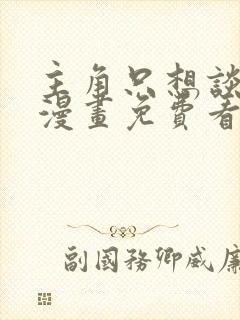 主角只想談
漫畫免費看
副國務卿威廉